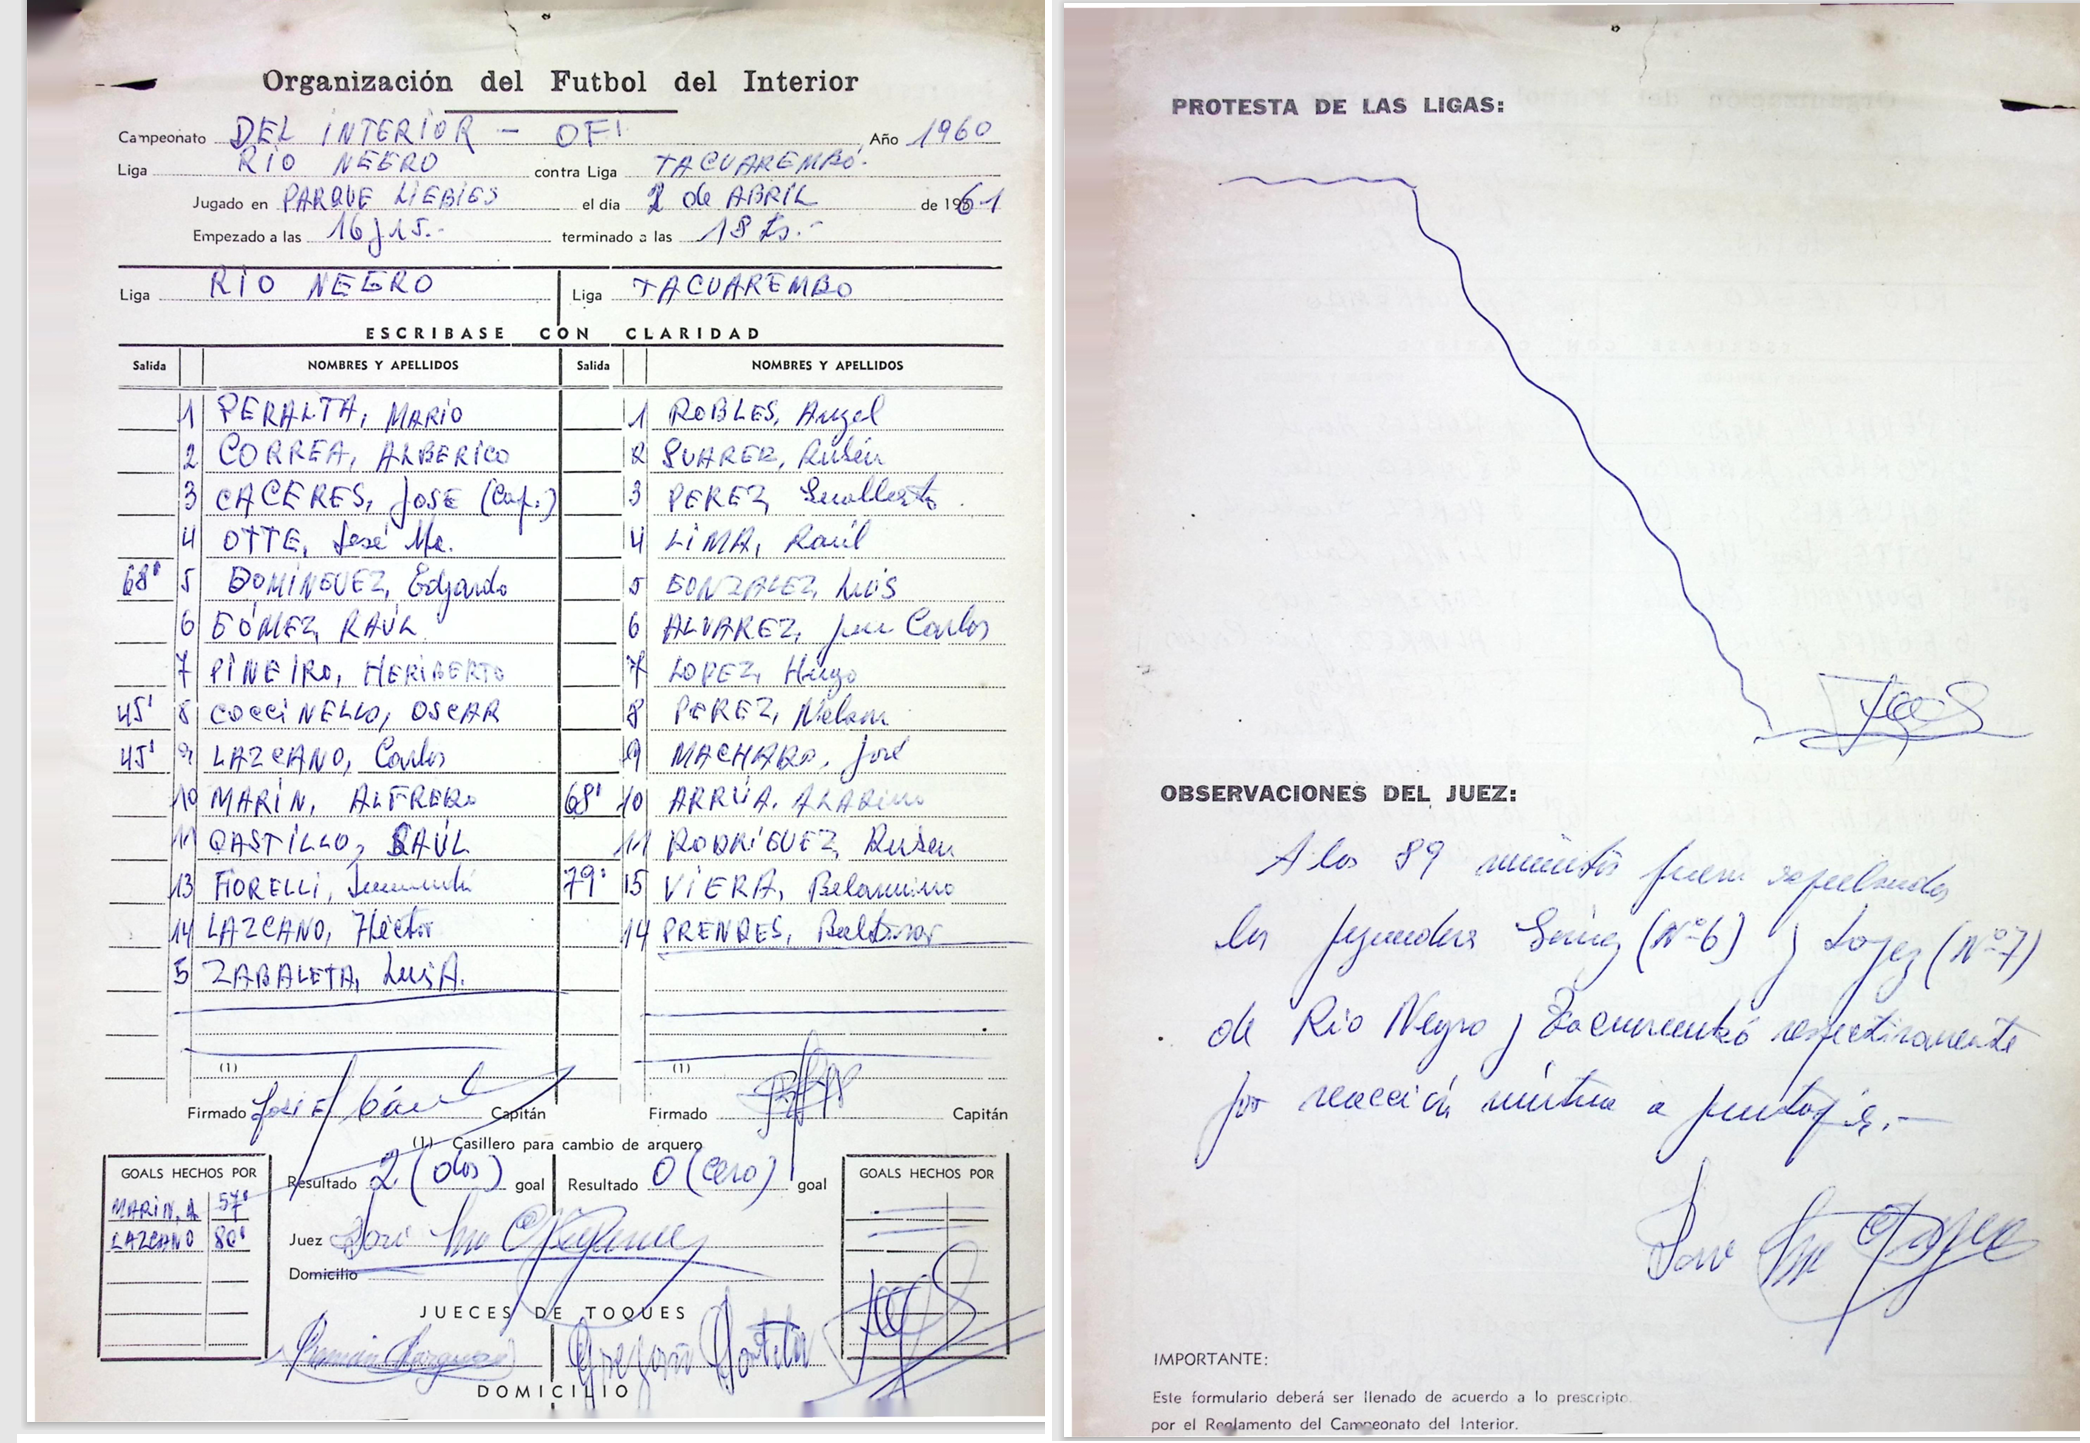 Organización del Futbol del Interior
Campeonato DEL INTERIOR - OFI Año 1960
Liga RIO NEGRO contra Liga TACUAREMBÓ.
Jugado en PARQUE LIEBIES el dia 2 de ABRIL de 1961
Empezado a las 16 y 15.- terminado a las 18 hs.-
Liga RIO NEGRO Liga TACUAREMBO
ESCRIBASE CON CLARIDAD
Salida NOMBRES Y APELLIDOS Salida NOMBRES Y APELLIDOS
1 PERALTA, MARIO 1 ROBLES, Angel
2 CORREA, ALBERICO 2 SUAREZ, Rubén
3 CACERES, JOSE (Cap.) 3 PEREZ, Gualberto
4 OTTE, José Ma. 4 LIMA, Raúl
68' 5 DOMINGUEZ, Edgardo 5 GONZALEZ, Luis
6 GÓMEZ, RAÚL 6 ALVAREZ, Juan Carlos
7 PINEIRO, HERIBERTO 7 LOPEZ, Hugo
45' 8 COCCINELLO, OSCAR 8 PEREZ, Nelson
45' 9 LAZCANO, Carlos 9 MACHADO, José
10 MARIN, ALFREDO 68' 10 ARRÚA,
11 CASTILLO, RAÚL 11 RODRÍGUEZ, Ruben
13 FIORELLI, 79' 15 VIERA, Belarmino
14 LAZCANO, Héctor 14 PRENDES, Baltasar
5 ZABALETA, Luis A.
(1) (1)
Firmado José E. Capitán Firmado Capitán
(1) Casillero para cambio de arquero
GOALS HECHOS POR Resultado 2 (dos) goal Resultado 0 (cero) goal GOALS HECHOS POR
MARIN, A 57'
LAZCANO 80' Juez José
Domicilio
JUECES DE TOQUES
DOMICILIO
PROTESTA DE LAS LIGAS:
OBSERVACIONES DEL JUEZ:
A los 89 minutos fueron expulsados
los jugadores Gómez (Nº 6) y Lopez (Nº 7)
de Rio Negro y Tacuarembó respectivamente
por reacción mútua a puntapié.-
IMPORTANTE:
Este formulario deberá ser llenado de acuerdo a lo prescripto.
por el Reglamento del Campeonato del Interior.